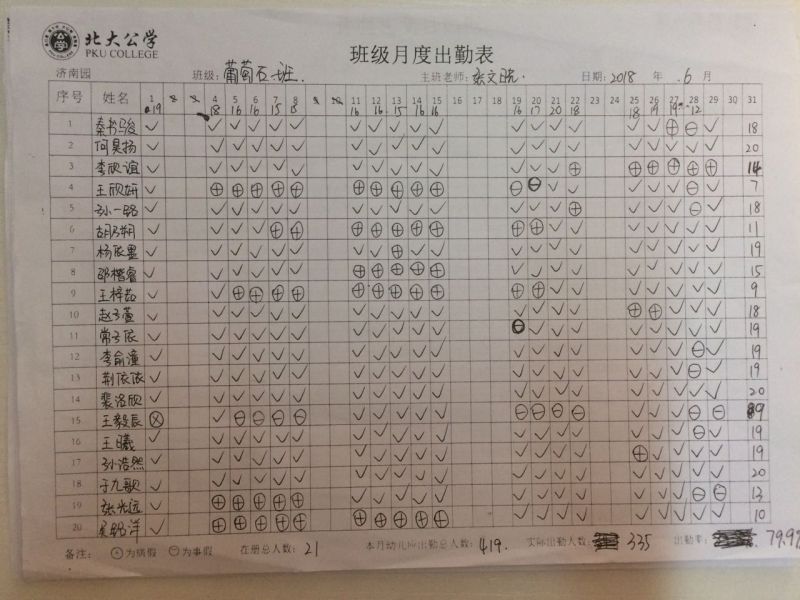 北大公学
PKU COLLEGE
班级月度出勤表
济南园 班级: 葡萄石班. 主班老师: 日期: 2018 年 6 月
序号 姓名 1 4 5 6 7 8 11 12 13 14 15 16 17 18 19 20 21 22 23 24 25 26 27 28 29 30 31
19 18 16 16 15 15 16 16 15 16 16 16 17 20 18 18 19 19 12
1 秦书骏 ✓ ✓ ✓ ✓ ✓ ✓ ✓ ✓ ✓ ✓ ✓ ✓ ✓ ✓ ✓ ✓ ✓ ⊕ ⊖ ✓ 18
2 何昊扬 ✓ ✓ ✓ ✓ ✓ ✓ ✓ ✓ ✓ ✓ ✓ ✓ ✓ ✓ ✓ ✓ ✓ ✓ ✓ ✓ 20
3 李欣谊 ✓ ✓ ✓ ✓ ✓ ✓ ✓ ✓ ✓ ✓ ✓ ✓ ✓ ✓ ⊕ ⊕ ⊕ ⊕ ⊕ ⊕ 14
4 王欣妍 ✓ ⊕ ⊕ ⊕ ⊕ ⊕ ⊕ ⊕ ⊕ ⊕ ⊕ ⊖ ⊖ ✓ ✓ ✓ ✓ ✓ ⊖ ✓ 7
5 孙一铭 ✓ ✓ ✓ ✓ ✓ ✓ ✓ ✓ ✓ ✓ ✓ ✓ ✓ ✓ ⊕ ✓ ✓ ✓ ⊖ ✓ 18
6 胡 朔 ✓ ✓ ✓ ✓ ⊕ ⊕ ⊕ ⊕ ⊕ ⊕ ⊕ ⊕ ⊕ ✓ ✓ ✓ ✓ ✓ ✓ ✓ 11
7 杨依墨 ✓ ✓ ✓ ✓ ✓ ✓ ✓ ✓ ⊕ ✓ ✓ ✓ ✓ ✓ ✓ ✓ ✓ ✓ ✓ ✓ 19
8 邵楷睿 ✓ ✓ ✓ ✓ ✓ ✓ ⊕ ⊕ ⊕ ⊕ ⊕ ✓ ✓ ✓ ✓ ✓ ✓ ✓ ✓ ✓ 15
9 王梓 ✓ ✓ ⊕ ⊕ ⊕ ⊕ ⊕ ⊕ ⊕ ⊕ ⊕ ⊕ ⊕ ✓ ✓ ✓ ✓ ✓ ✓ ✓ 9
10 赵子萱 ✓ ✓ ✓ ✓ ✓ ✓ ✓ ✓ ✓ ✓ ✓ ✓ ✓ ✓ ✓ ⊕ ⊕ ✓ ✓ ✓ 18
11 常子依 ✓ ✓ ✓ ✓ ✓ ✓ ✓ ✓ ✓ ✓ ✓ ⊖ ✓ ✓ ✓ ✓ ✓ ✓ ✓ ✓ 19
12 李俞潼 ✓ ✓ ✓ ✓ ✓ ✓ ✓ ✓ ✓ ✓ ✓ ✓ ✓ ✓ ✓ ✓ ✓ ✓ ⊖ ✓ 19
13 荆依依 ✓ ✓ ✓ ✓ ✓ ✓ ✓ ✓ ✓ ✓ ✓ ✓ ✓ ✓ ✓ ✓ ✓ ✓ ⊖ ✓ 19
14 裴洛欣 ✓ ✓ ✓ ✓ ✓ ✓ ✓ ✓ ✓ ✓ ✓ ✓ ✓ ✓ ✓ ✓ ✓ ✓ ✓ ✓ 20
15 王毅辰 ⊗ ✓ ⊖ ⊖ ⊖ ⊖ ✓ ✓ ✓ ✓ ✓ ⊖ ⊖ ⊖ ⊖ ✓ ✓ ✓ ⊖ ⊖ 9
16 王曦 ✓ ✓ ✓ ✓ ✓ ✓ ✓ ✓ ✓ ✓ ✓ ✓ ✓ ✓ ✓ ✓ ✓ ✓ ⊖ ✓ 19
17 孙浩然 ✓ ✓ ✓ ✓ ✓ ✓ ✓ ✓ ✓ ✓ ✓ ✓ ✓ ✓ ✓ ⊕ ✓ ✓ ✓ ✓ 19
18 于九歌 ✓ ✓ ✓ ✓ ✓ ✓ ✓ ✓ ✓ ✓ ✓ ✓ ✓ ✓ ✓ ✓ ✓ ✓ ✓ ✓ 20
19 张光远 ✓ ⊕ ⊕ ⊕ ⊕ ⊕ ✓ ✓ ✓ ✓ ✓ ✓ ✓ ✓ ✓ ✓ ✓ ✓ ⊖ ⊖ 13
20 吴铭洋 ✓ ⊕ ⊕ ⊕ ⊕ ⊕ ⊕ ⊕ ⊕ ⊕ ⊕ ✓ ✓ ✓ ✓ ✓ ✓ ✓ ✓ ✓ 10
备注: ⊕为病假 ⊖为事假 在册总人数: 21 本月幼儿应出勤总人数: 419. 实际出勤人数: 335 出勤率: 79.9%